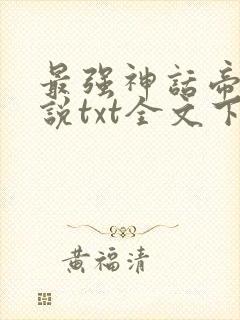 最强神話帝
說txt全文下
黄福清